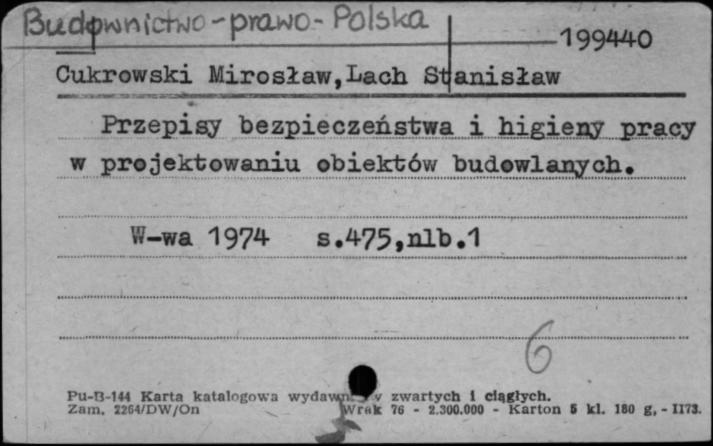 Budownictwo-prawo-Polska
199440
Cukrowski Mirosław,Lach Stanisław
Przepisy bezpieczeństwa i higieny pracy
w projektowaniu obiektów budowlanych.
W-wa 1974 s.475,nlb.1
6
Pu-B-144 Karta katalogowa zwartych i ciągłych.
Zam. 2264/DW/On Wrak 76 - 2.300.000 - Karton 5 kl. 180 g, - II73.